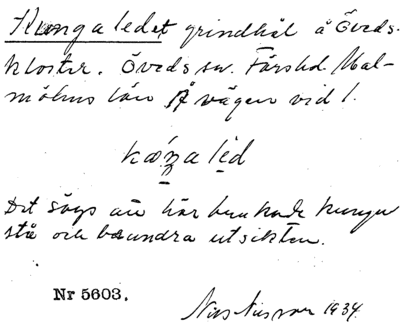 Kungaledet grindhål å Öveds-
kloster. Öveds sn. Färs hd. Mal-
möhus län på vägen vid 1.
Det sägs att här brukade kungen
stå och beundra utsikten.
Nr 5603.
Nils Nilsson 1934.